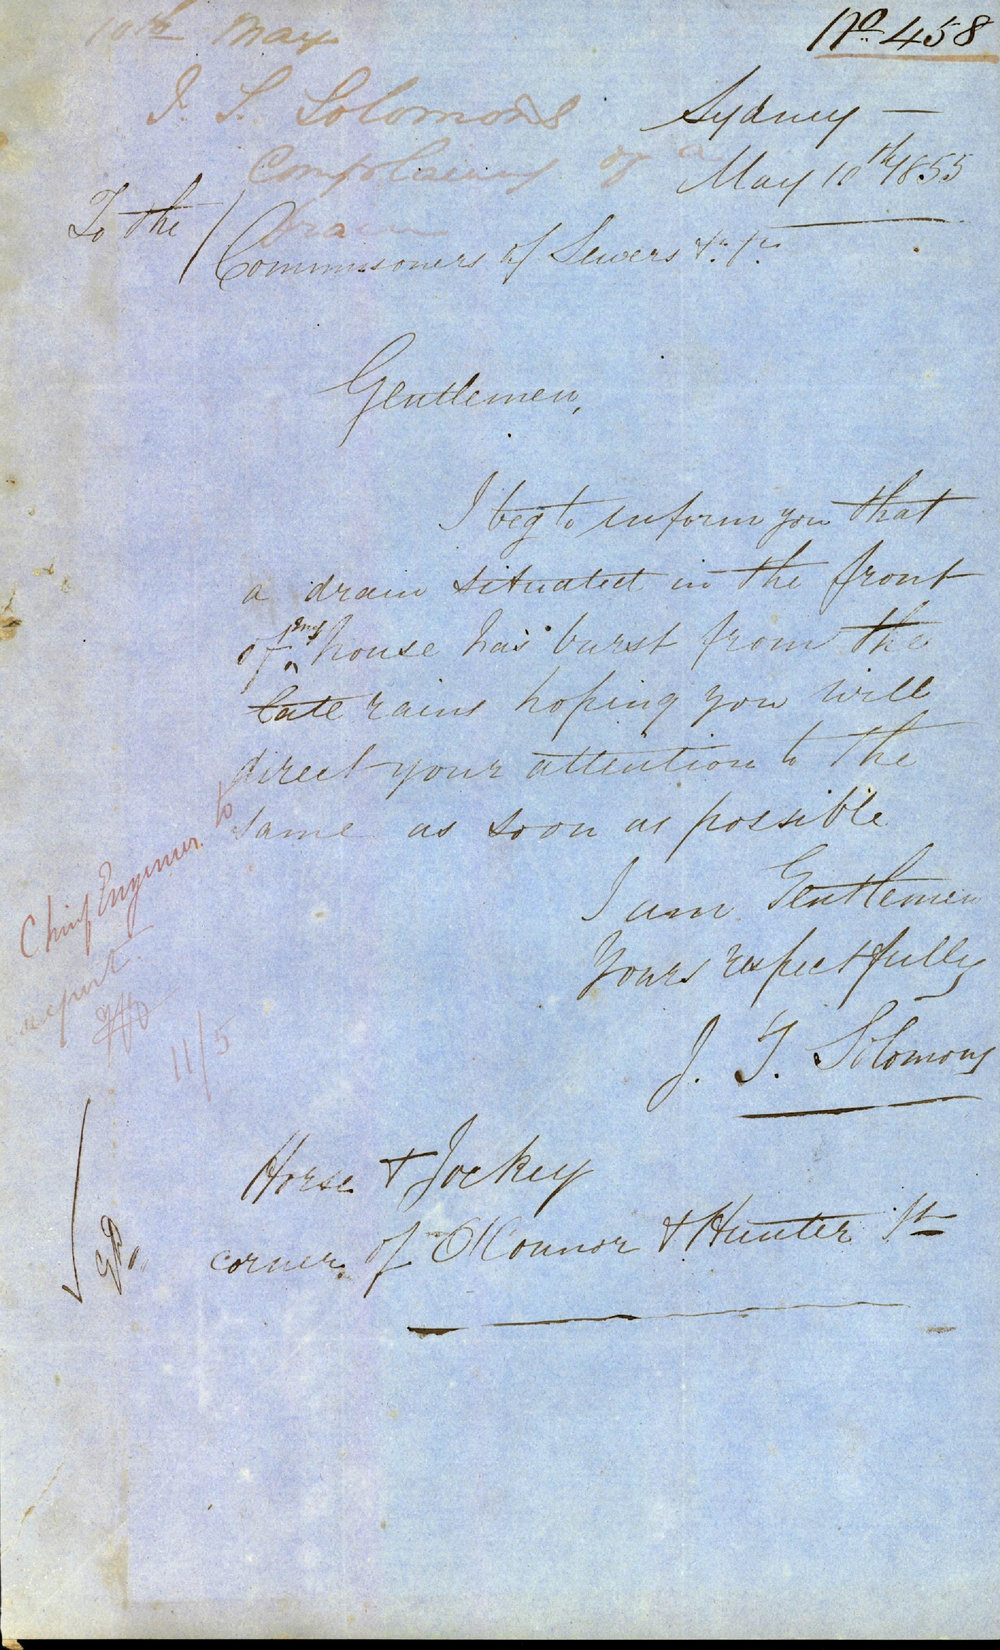 10th May
No. 458
J. S. Solomons
Complaining of a
Drain
Sydney —
May 10th 1855
To the /
Commissoners of Sewers &c &c
Gentlemen,
I beg to inform you that
a drain situated in the front
of my house has burst from the
late rains hoping you will
direct your attention to the
same as soon as possible
I am Gentlemen
Yours respectfully
J. T. Solomons
Chief Engineer to
report.
11/5
Horse & Jockey
corner of O'Connor & Hunter St